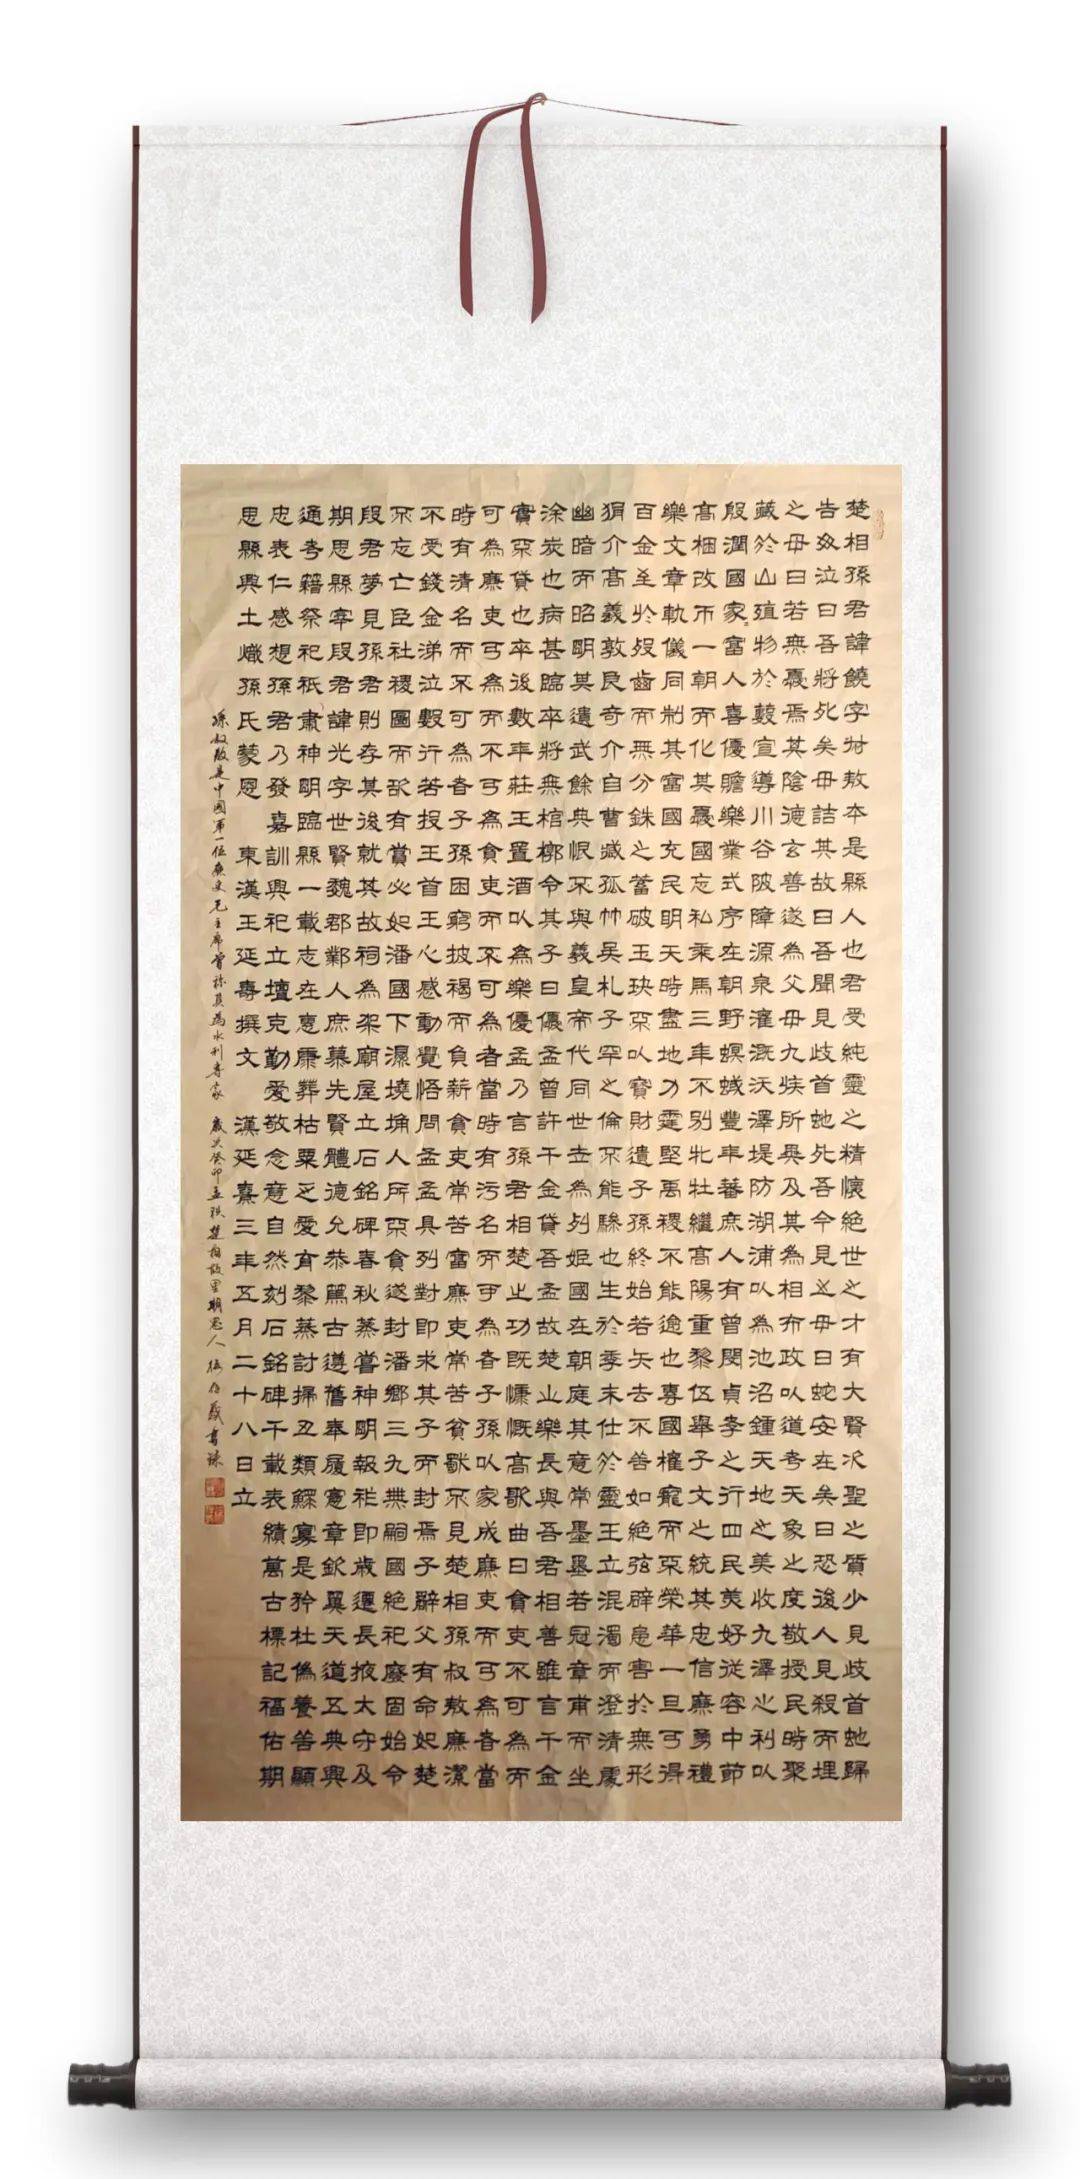 楚相孫君諱饒字叔敖本是縣人也君受純靈之精懷絕世之才有大賢次聖之質少見歧首虵歸
告母泣曰吾將死矣母詰其故曰吾聞見歧首虵死吾今見之母曰蛇安在矣曰恐後人見殺而埋
之母曰若無憂焉其陰德玄善遂為父母九族所異及其為相布政以道考天象之度敬授民時聚
藏於山殖物於藪宣導川谷陂障源泉灌溉沃澤堤防湖浦以為池沼鍾天地之美收九澤之利以
殷潤國家富人喜優贍樂業式序在朝野螟蜮豐年蕃庶人有曾閔貞孝之行四民美好從容中節
高梱改币一朝而化其憂國忘私乘馬三年不別牝牡繼高陽重黎伍舉子文之統其忠信廉勇禮
樂文章軌儀同制其富國充民明天時盡地力霆堅禹稷不能逾也專國權寵而不榮華一旦可得
百金至於歿齒而無分銖之蓄破玉玦不以寶財遺子孫終始若矢去不善如絕弦辟患害於無形
狷介高義敦良奇介自曹臧孤竹吳札子罕之倫不能驂也生於季末仕於靈王立混濁而澄清處
幽暗而昭明其遺武餘典恨不與羲皇帝代同世世為列姬國在朝庭其意常墨墨若冠章甫而坐
涂炭也病甚臨卒將無棺槨令其子曰優孟曾許千金貸吾孟故楚之樂長與吾君相善雖言千金
實不貸也卒後數年莊王置酒以為樂優孟乃言孫君相楚之功既慷慨高歌曲曰貪吏不可為而
可為廉吏可為而不可為貪吏而不可為者當時有污名而可為者子孫以家成廉吏而可為者當
時有清名而不可為者子孫困窮披褐而負薪貪吏常苦富廉吏常苦貧獨不見楚相孫叔敖廉潔
不受錢金涕泣數行若投王首王心感動覺悟問孟孟具列對即求其子而封焉子辭父有命如楚
不忘亡臣社稷圖而欲有賞必如潘國下濕墝埆人所不貪遂封潘鄉三九無嗣國絕祀廢固始令
段君夢見孫君則存其後就其故祠為架廟屋立石銘碑春秋蒸嘗神明報祚即歲遷長掖太守及
期思縣宰段君諱光字世賢魏郡鄴人庶慕先賢體德允恭篤古遵舊奉履憲章欽翼天道五典興
通考籍祭祀祇肅神明臨縣一載志在惠康葬枯粟乏愛育黎蒸討掃丑類鰥寡是矜杜偽養善顯
忠表仁感想孫君乃發嘉訓興祀立壇克勤愛敬念意自然刻石銘碑千載表績萬古標記福佑期
思縣興土熾孫氏蒙恩 東漢王延壽撰文 漢延熹三年五月二十八日立
孫叔敖是中國第一位廉吏毛主席曾稱其為水利專家 歲次癸卯孟秋楚相故里期思人 書錄